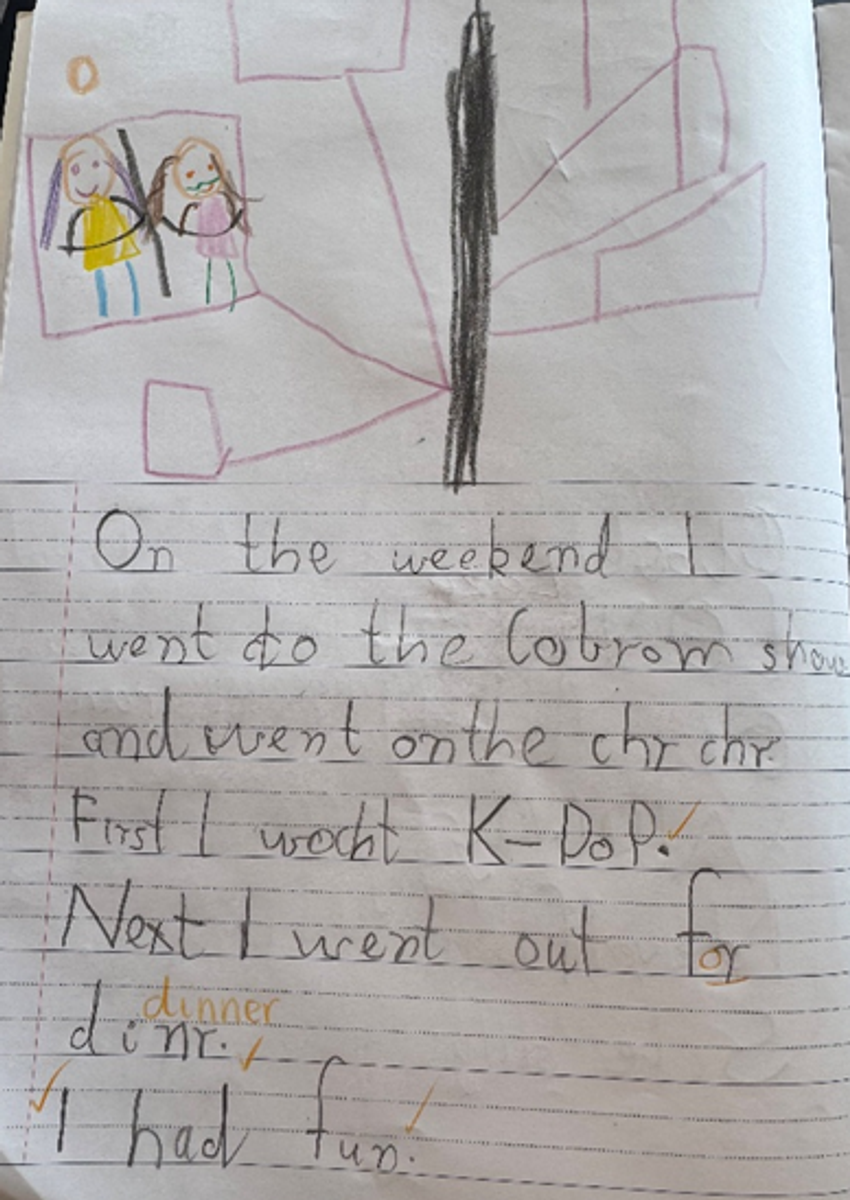 On the weekend I
went to the Cobrom show
and went on the chr chr
First I wocht K-PoP.
Next I went out for
dinner
dinr.
I had fun.